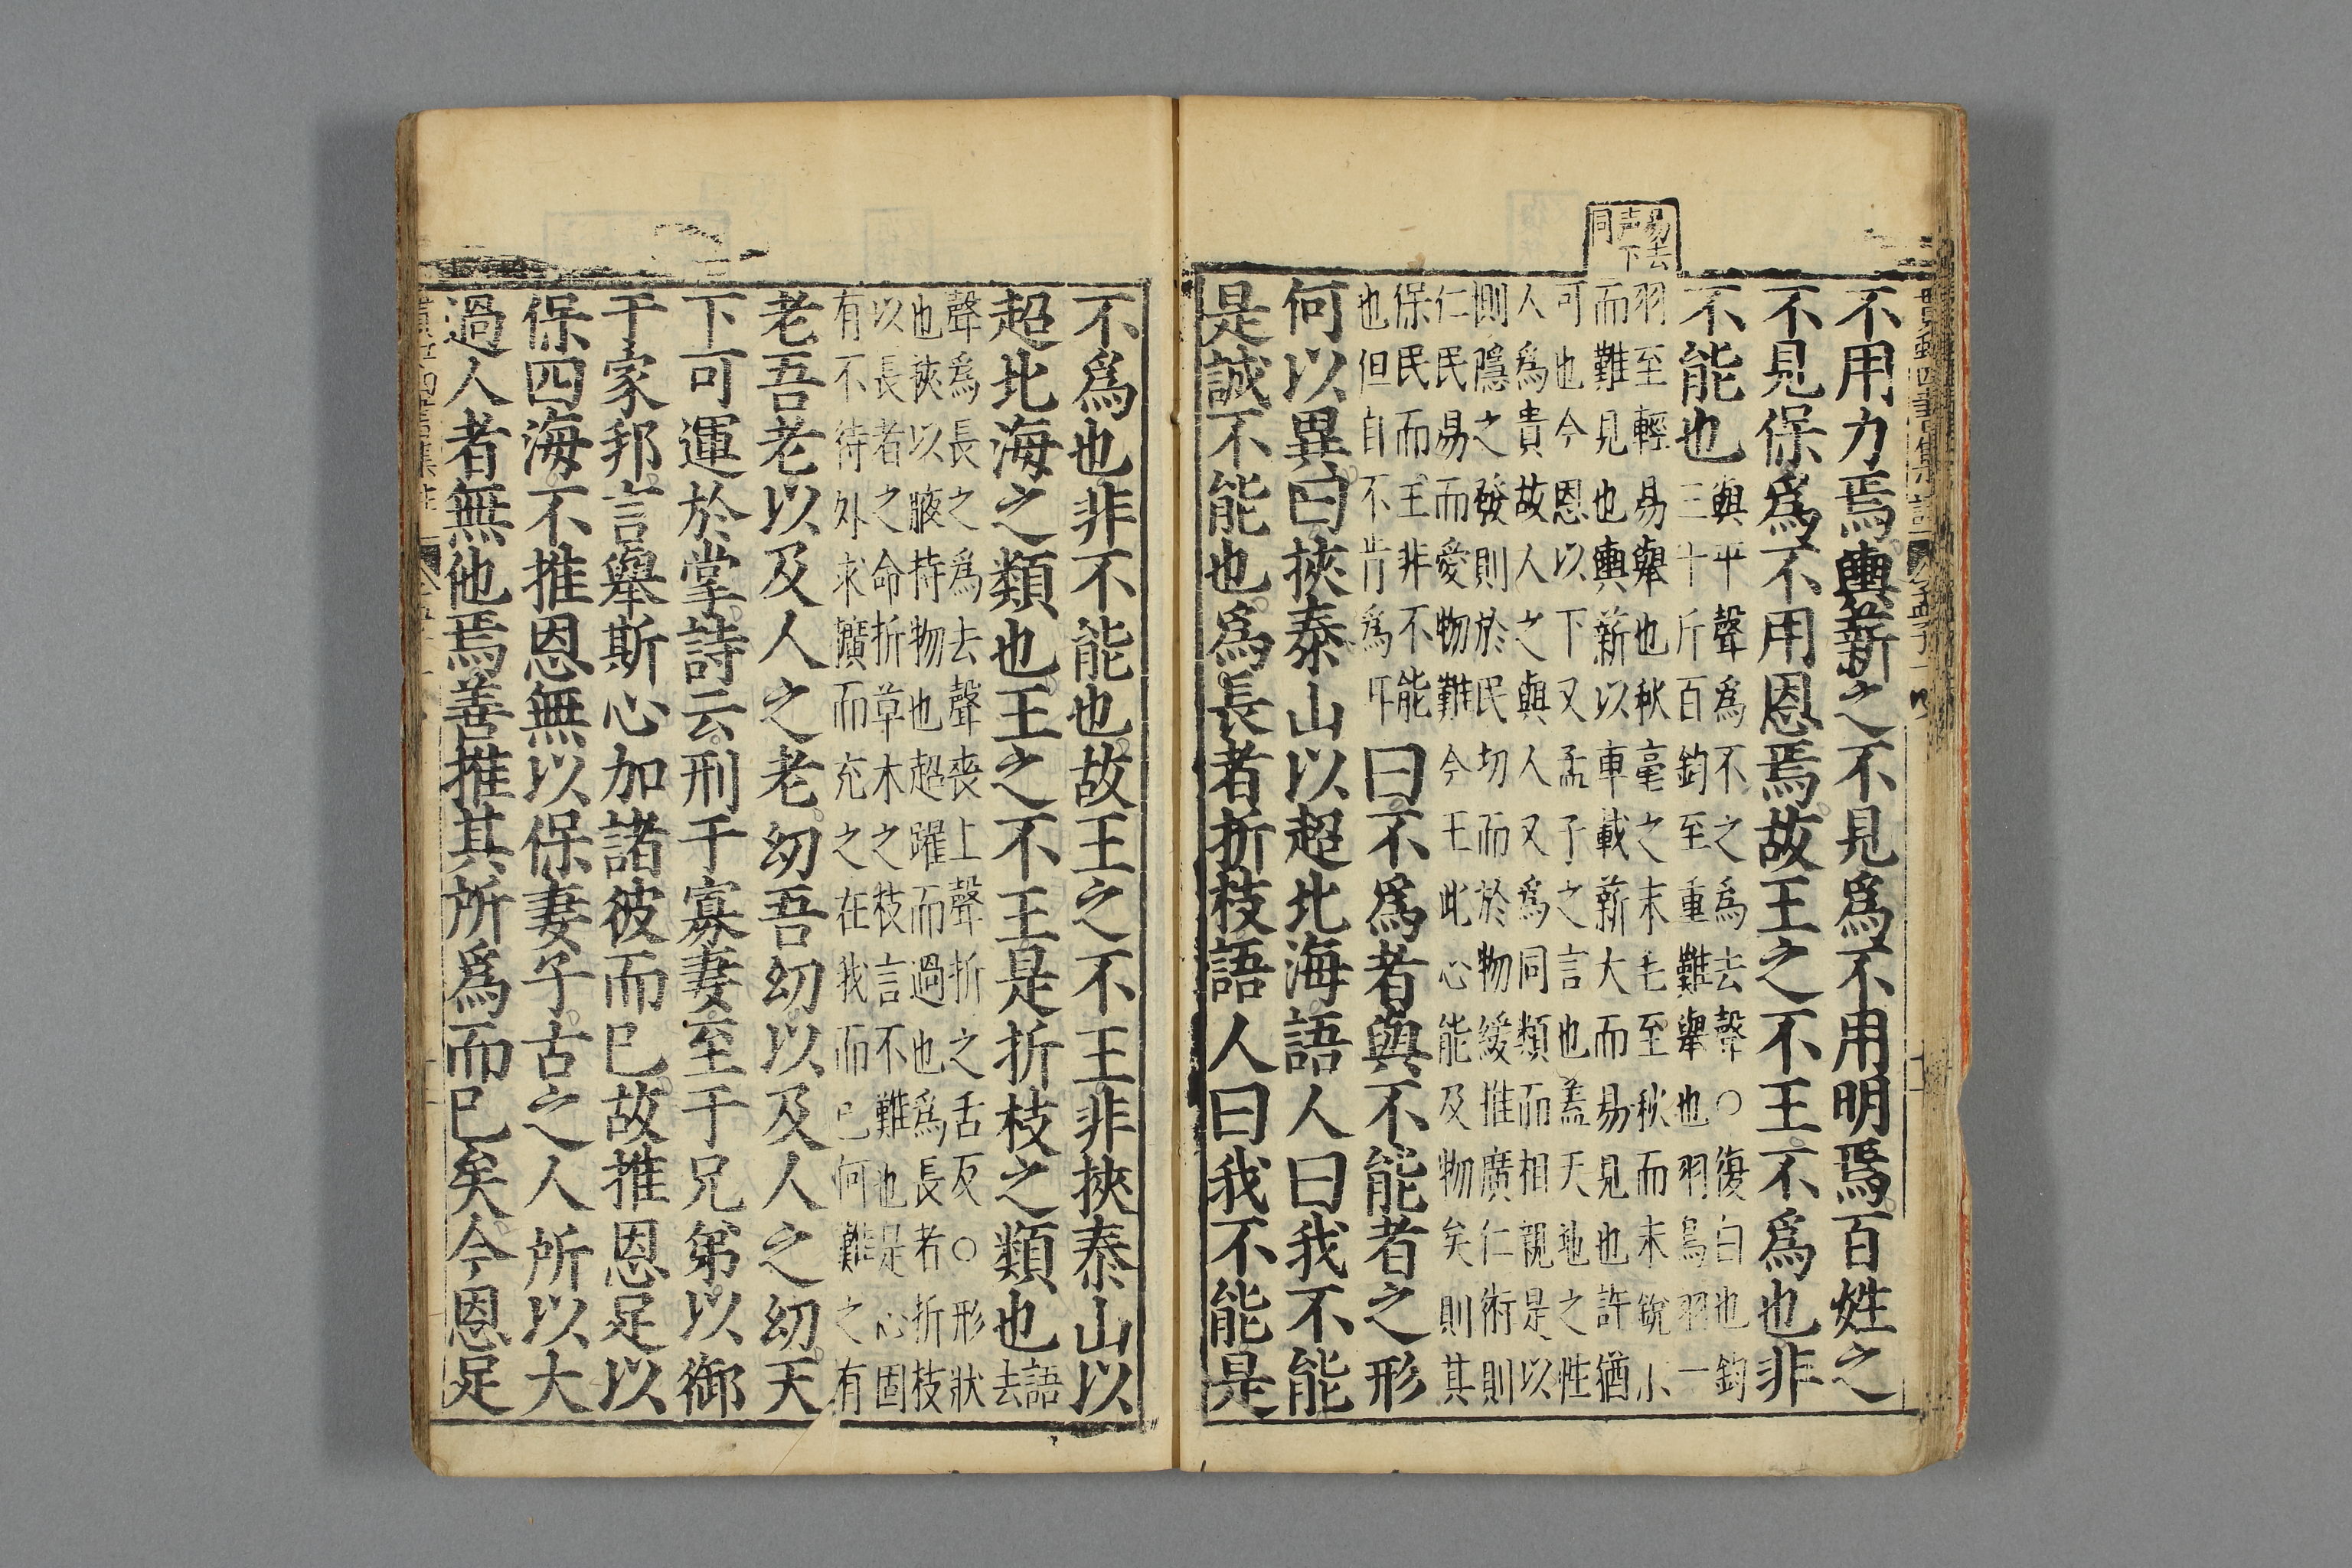 易去
声下
同
不用力焉輿薪之不見爲不用明焉百姓之
不見保爲不用恩焉故王之不王不爲也非
不能也
與平聲爲不之爲去聲○復白也鈞
三十斤百鈞至重難舉也羽鳥羽一
羽至輕易舉也秋毫之末毛至秋而末銳小
而難見也輿薪以車載薪大而易見也許猶
可也今恩以下又孟子之言也蓋天地之性
人爲貴故人之與人又爲同類而相親是以
惻隱之發則於民切而於物緩推廣仁術則
仁民易而愛物難今王此心能及物矣則其
保民而王非不能
也但自不肯爲耳
曰不爲者與不能者之形
何以異曰挾泰山以超北海語人曰我不能
是誠不能也爲長者折枝語人曰我不能是
不爲也非不能也故王之不王非挾泰山以
超北海之類也王之不王是折枝之類也
語
去
聲爲長之爲去聲喪上聲折之舌反○形狀
也挾以腋持物也超躍而過也爲長者折枝
以長者之命折草木之枝言不難也是心固
有不待外求擴而充之在我而已何難之有
老吾老以及人之老幼吾幼以及人之幼天
下可運於掌詩云刑于寡妻至于兄弟以御
于家邦言舉斯心加諸彼而已故推恩足以
保四海不推恩無以保妻子古之人所以大
過人者無他焉善推其所爲而已矣今恩足